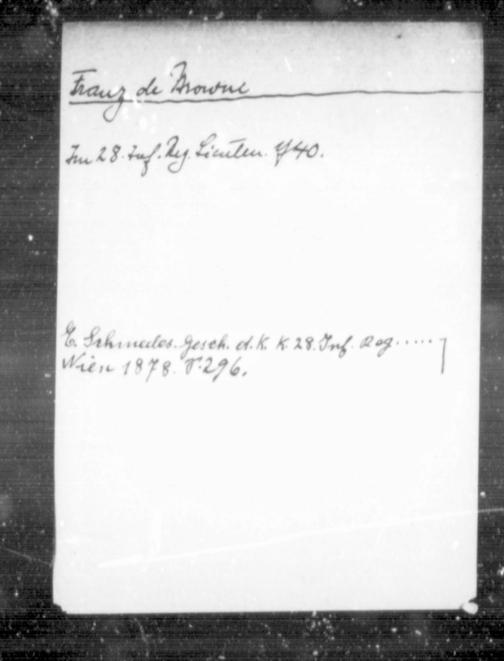 Franz de Browne
Im 28. Inf. Reg. Lieuten. 740.
E. Schmedes. Gesch. d. K. K. 28. Inf. Reg.....
Wien 1878. S. 296.